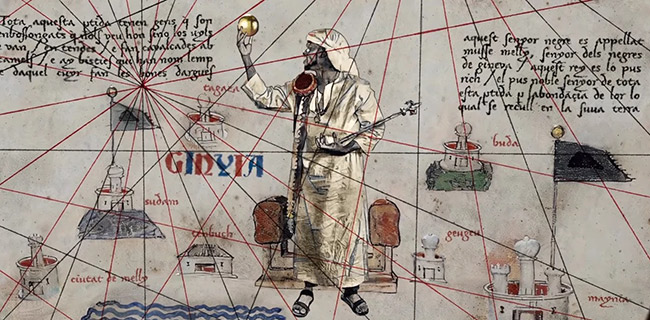 Tota aquesta ptida tenen gens q son
enboffonyats q nols veu hom sino los uyls
e van en tendes e fan cavalcades ab
camels e ay bisties que han nom lemp
e daquel cuyr fan les bones dargues
aquest senyor negre es appellat
musse melly senyor dels negres
de gineva aquest rey es lo pus
rich el pus noble senyor de tota
esta ptida p labondacia de lor lo
qual se recull en la suua terra
tagaza
GINYIA
buda
sudam
tenbuch
geugeu
ciutat de melly
mayma